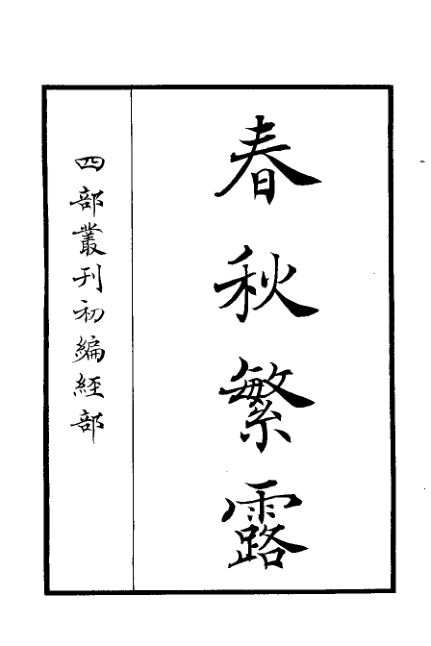 春秋繁露
四部叢刊初編經部